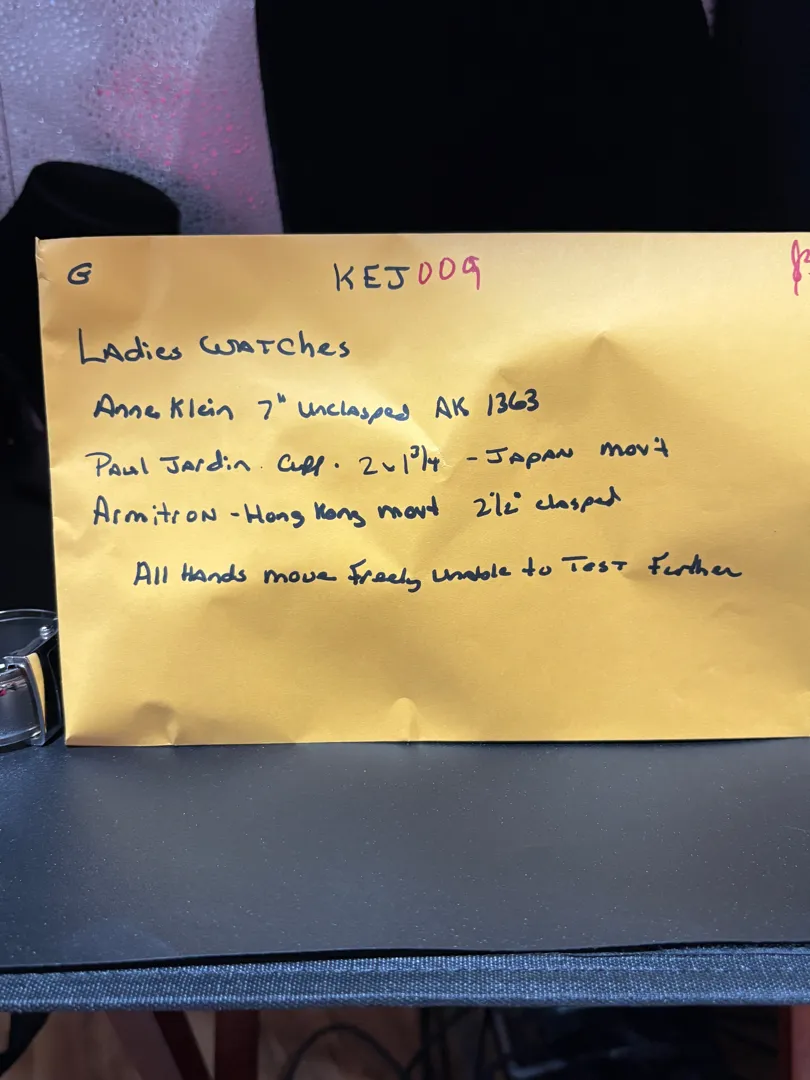 G KEJ009
Ladies Watches
Anne Klein 7" unclasped AK 1363
Paul Jardin Cuff. 2 1 3/4 - Japan mov't
Armitron - Hong Kong movt 2 1/2" clasped
All Hands move Freely unable to Test Further